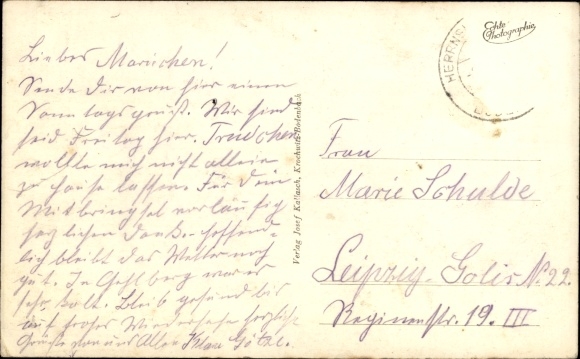 Liebes Mariechen!
Sende Dir von hier einen
Sonntagsgruß. Wir sind
seid Freitag hier. Trudchen
wollte mich nicht allein
zu Hause lassen. Für Dein
Mitbringsel vorläufig
herzlichen Dank. hoffend-
lich bleibt das Wetter noch
gut. In Gehlberg war es
sehr kalt. Bleib gesund bis
auf frohes Wiedersehn herzlich
Grüße von uns Allen Frau Götze.
Verlag Josef Kallasch, Krochwitz-Bodenbach
Echte
Photographie
HERRNS
Frau
Marie Schulde
Leipzig-Golis N. 22.
Reginenstr. 19. III